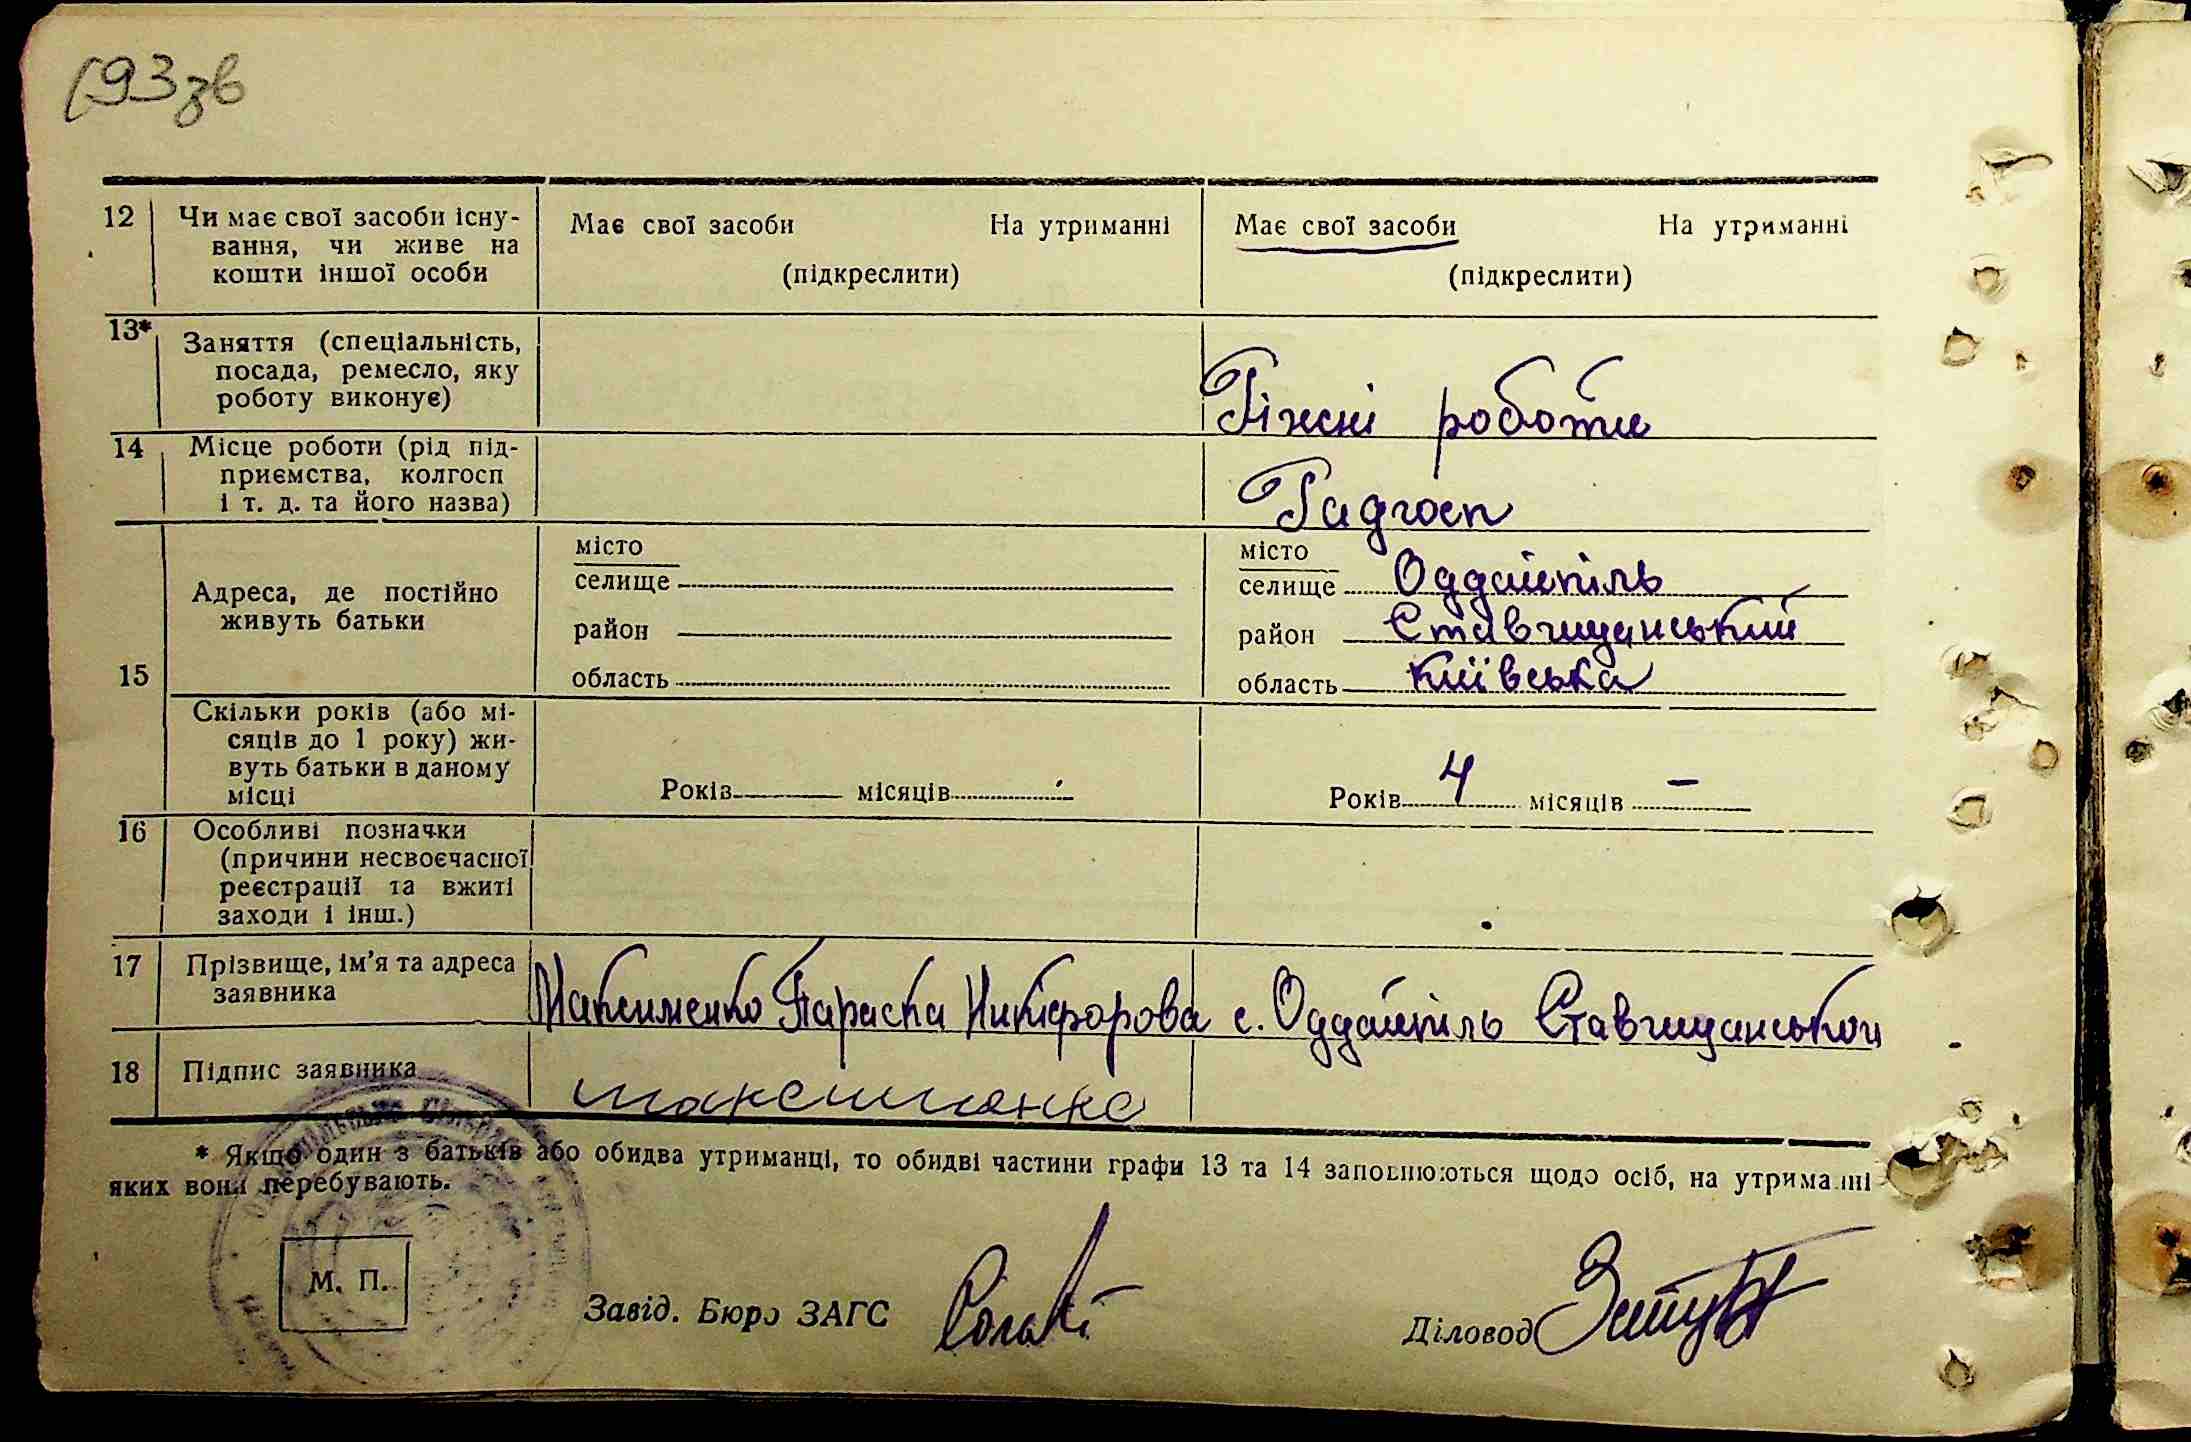 193зв
12 Чи має свої засоби існу-
вання, чи живе на
кошти іншої особи
Має свої засоби На утриманні
(підкреслити)
Має свої засоби На утриманні
(підкреслити)
13* Заняття (спеціальність,
посада, ремесло, яку
роботу виконує)
Ріжні роботи
14 Місце роботи (рід під-
приємства, колгосп
і т. д. та його назва)
Радгосп
15
Адреса, де постійно
живуть батьки
місто
селище
район
область
місто
селище Оддайпіль
район Ставищанський
область Київська
Скільки років (або мі-
сяців до 1 року) жи-
вуть батьки в даному
місці
Років місяців
Років 4 місяців —
16 Особливі позначки
(причини несвоєчасної
реєстрації та вжиті
заходи і інш.)
17 Прізвище, ім’я та адреса
заявника
Максименко Параска Никифорова с. Оддайпіль Ставищанськой
18 Підпис заявника
Максименко
* Якщо один з батьків або обидва утриманці, то обидві частини графи 13 та 14 заповнюються щодо осіб, на утриманні
яких вони перебувають.
М. П.
Завід. Бюро ЗАГС
Діловод